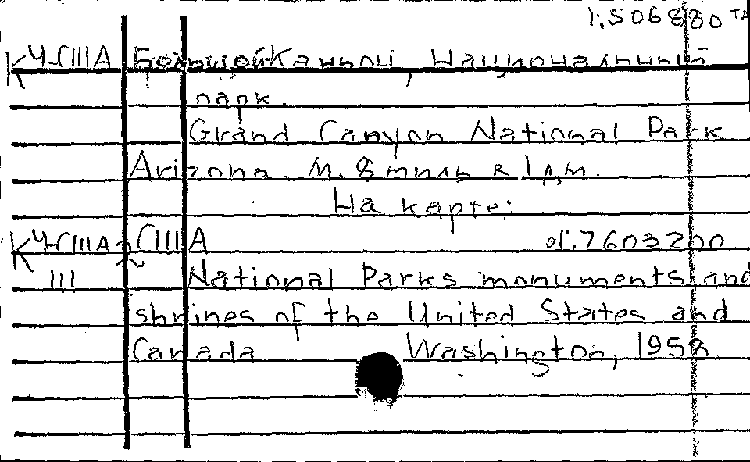 1:506880
К Ч-США Большой Каньон, Национальный
парк.
Grand Canyon National Park
Arizona. М. 8 миль в 1 дм.
На карте:
К Ч-США 2 США 1:7603200
III National Parks monuments and
shrines of the United States and
Canada Washington, 1958